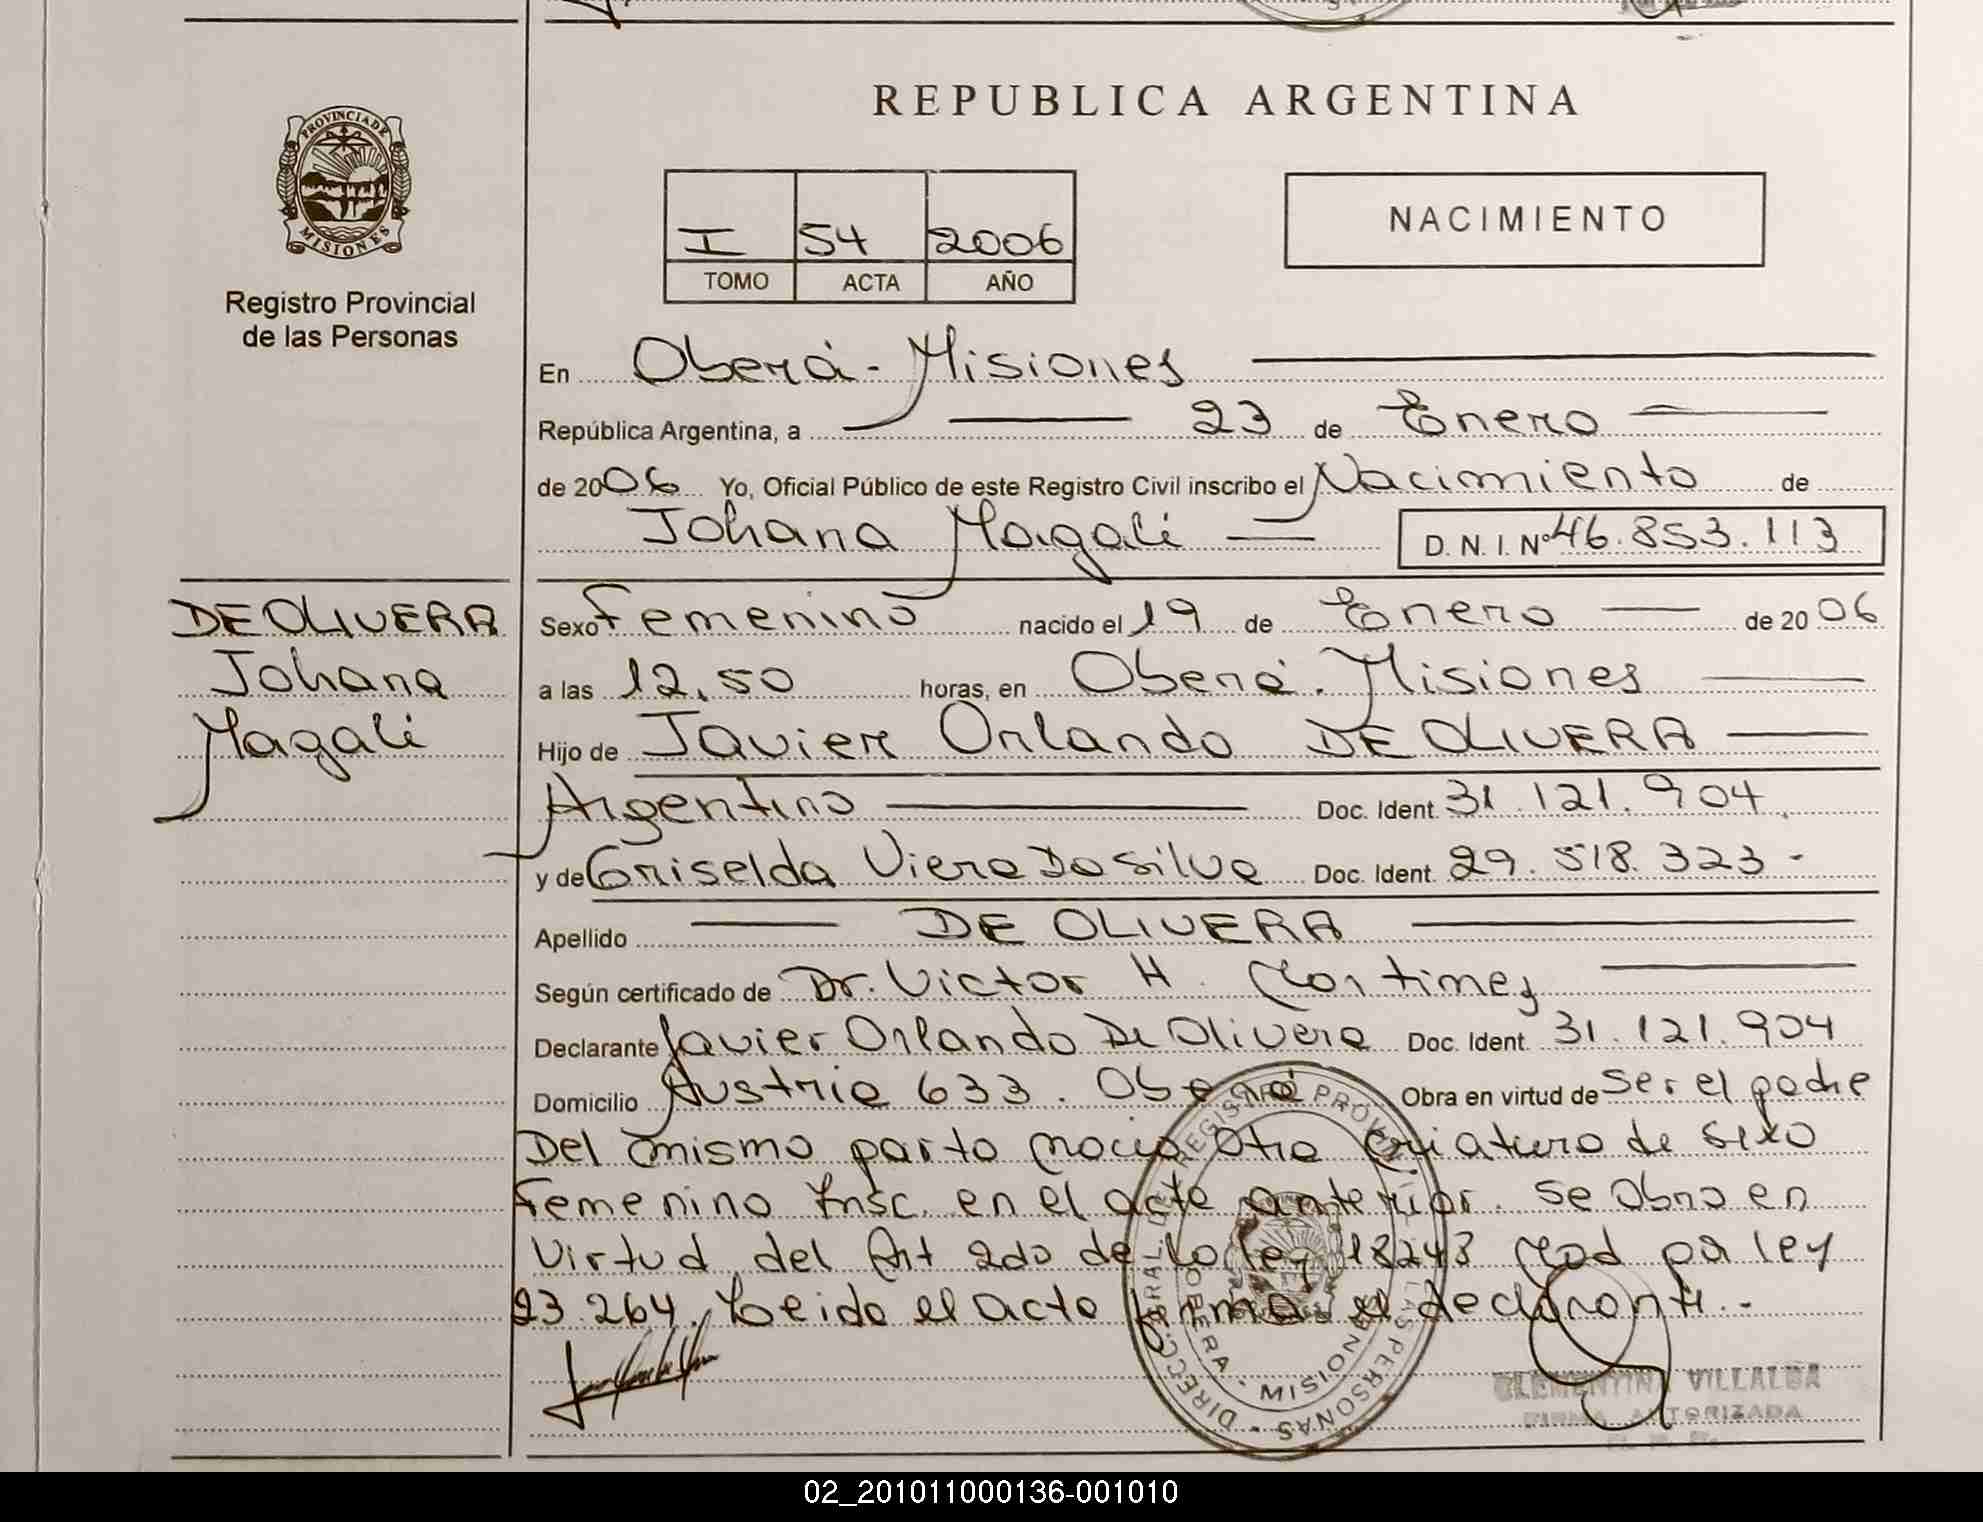 REPUBLICA ARGENTINA
PROVINCIA DE
MISIONES
Registro Provincial
de las Personas
I 54 2006
TOMO ACTA AÑO
NACIMIENTO
En Oberá - Misiones
República Argentina, a 23 de Enero
de 2006 Yo, Oficial Público de este Registro Civil inscribo el Nacimiento de
Johana Magali D.N.I. Nº 46.853.113
DE OLIVERA
Johana
Magali
Sexo Femenino nacido el 19 de Enero de 2006
a las 12,50 horas, en Oberá. Misiones
Hijo de Javier Orlando DE OLIVERA
Argentino Doc. Ident. 31.121.904
y de Griselda Viera Da Silva Doc. Ident. 29.518.323 -
Apellido DE OLIVERA
Según certificado de Dr. Victor H. Martinez
Declarante Javier Orlando De Olivera Doc. Ident. 31.121.904
Domicilio Austria 633. Oberá Obra en virtud de ser el padre
Del mismo parto nacio otra criatura de sexo
Femenino Insc. en el acta anterior. Se obra en
Virtud del Art 2do de la ley 18243 Mod por ley
23.264. Leida el acta firma el declarante.-
REGISTRO PROVINCIAL DE LAS PERSONAS
OBERA - MISIONES
CLEMENTINA VILLALBA
FIRMA AUTORIZADA
02_201011000136-001010